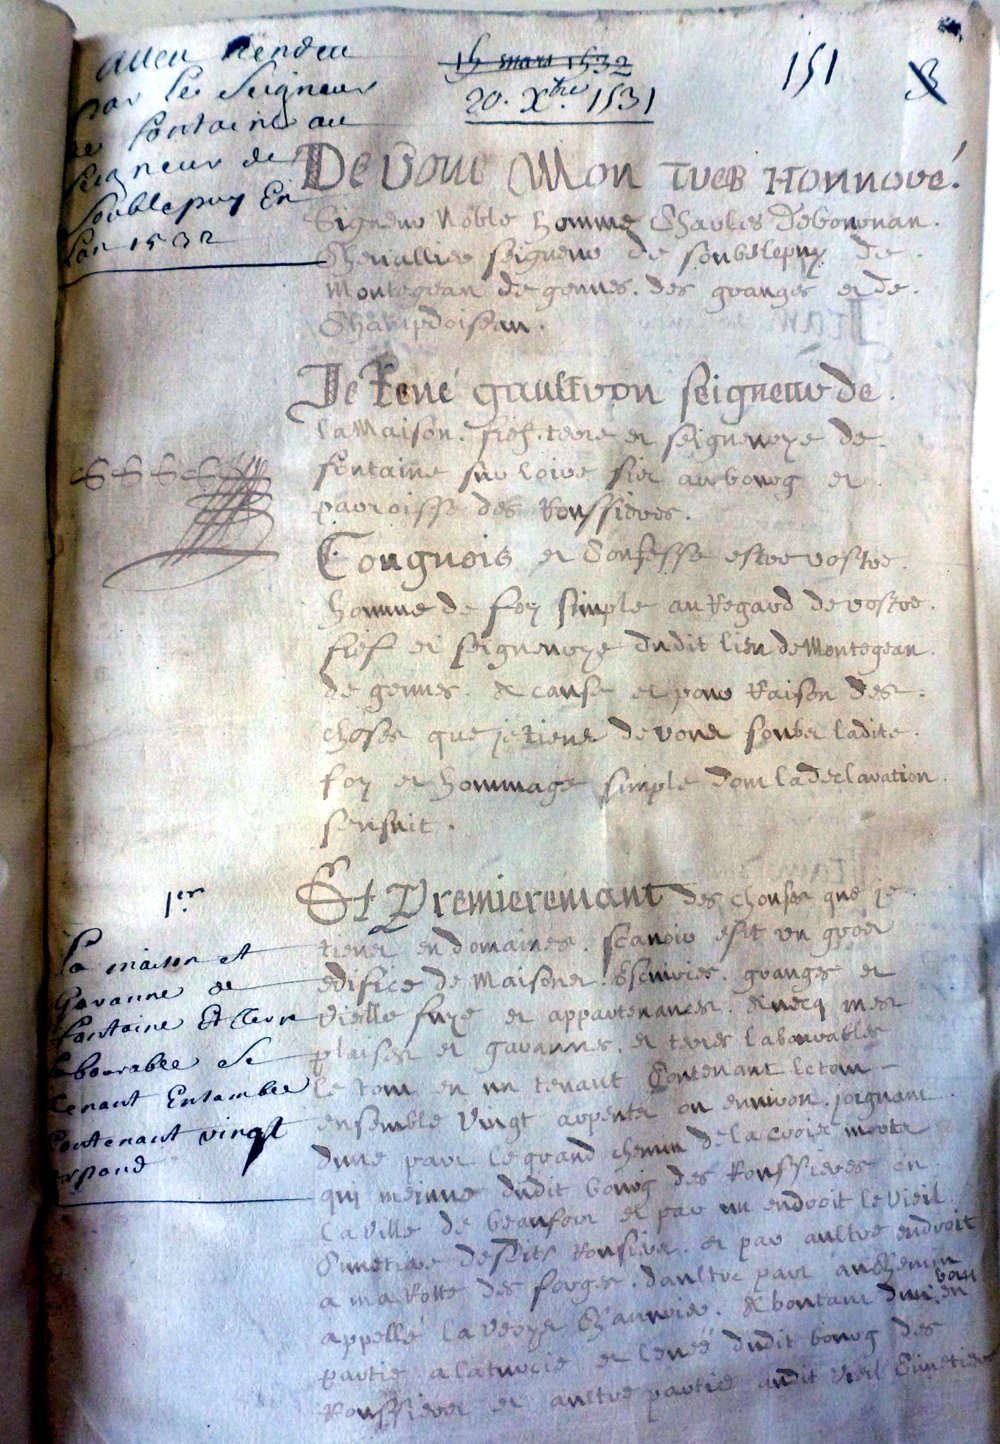 Aveu Rendu
Par Le Seigneur
de fontaine au
Seigneur de
Soublepuy En
Lan 1532
15 mars 1532
20. Xbre 1531
151
3
De Vous Mon tres Honnoré.
Signeur Noble homme Charles
Chevallier seigneur de soubslepuy de.
Montegean de gennes. des granges et de.
Champdoiseau.
Je René gaultron seigneur de.
la Maison. fief. terre et seigneurye de.
fontaine sur loire sis au bourg et.
parroisse des Roussieres.
Congnois et Confesse estre vostre.
homme de foy simple au Regard de vostre.
fief et seigneurye dudit lieu de Montegean.
de gennes. & cause et pour Raison des.
choses que je tiens de vous soubz ladite.
foy et hommage simple dont la declaration.
sensuit.
1er
La maison et
Garanne de
fontaine Et terre
labourable Se
tenant Ensamble
Contenant vingt
arpand
Et Premieremant des chouses que je.
tiens en domaines. scavoir est un gros
edifice de Maisons. Escuries. granges et
vieille fuye et appartenances. avecq mes
plaisis et garannes. et terres labourables
le tout en un tenant Contenant le tout
ensemble Vingt arpents ou environ. joignant
dune part le grand chemin de la croix verte
qui meinne dudit bourg des Roussieres en
la Ville de beaufort et par un endroit le Vieil
Cimetiere desdits Rousieres. et par aultre endroit
a ma Rotte des forges. daultre part au chemin
appellé la voye Chauviere. Aboutant dun bout en
partie a la turcie et levée dudit bourg des
Roussieres et aultre partie audit Vieil Cimetiere